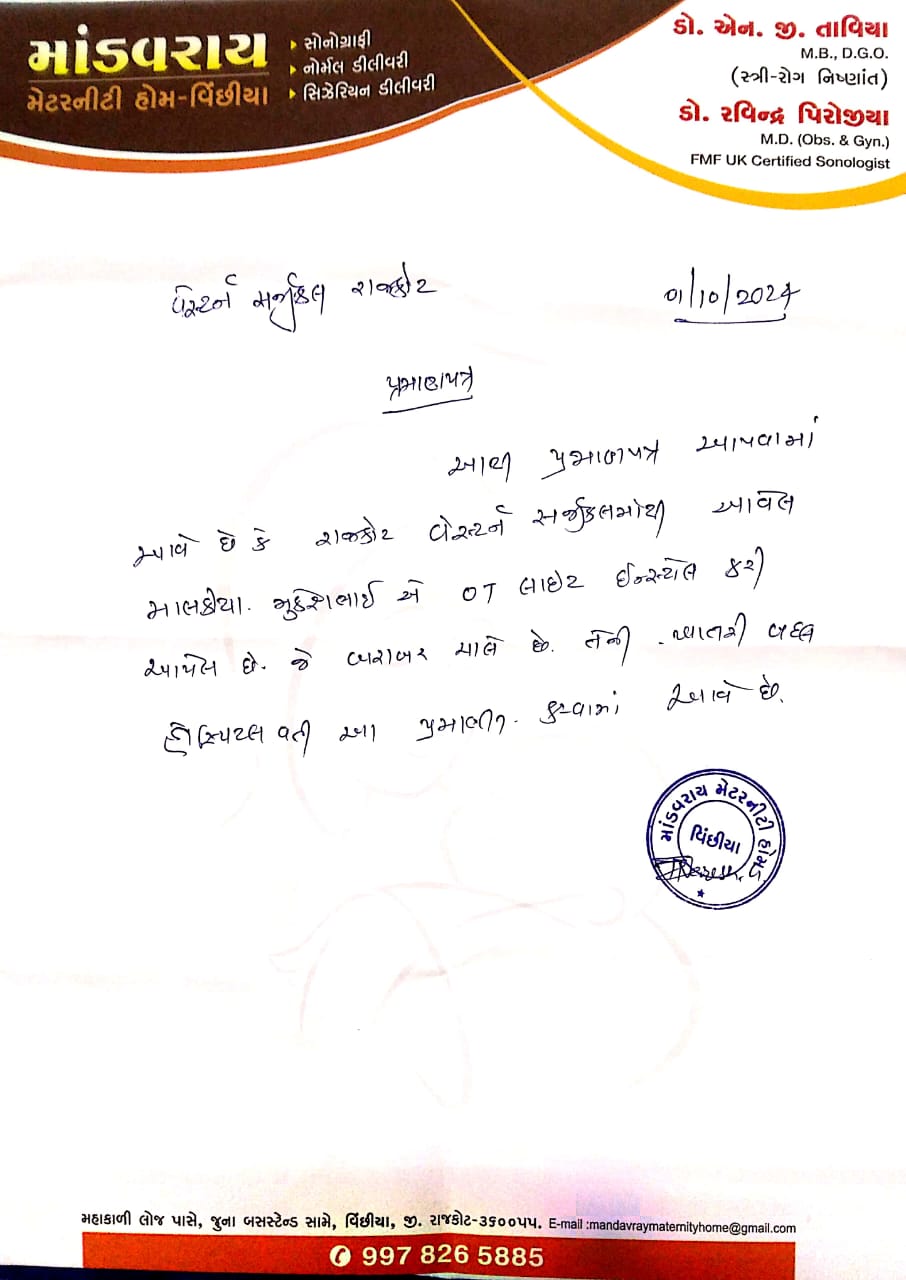 માંડવરાય
મેટરનીટી હોમ-વિંછીયા
સોનોગ્રાફી
નોર્મલ ડીલીવરી
સિઝેરિયન ડીલીવરી
ડો. એન. જી. તાવિયા
M.B., D.G.O.
(સ્ત્રી-રોગ નિષ્ણાંત)
ડો. રવિન્દ્ર પિરોજીયા
M.D. (Obs. & Gyn.)
FMF UK Certified Sonologist
વેસ્ટર્ન સર્જીકલ રાજકોટ
01/10/2024
પ્રમાણપત્ર
આથી પ્રમાણપત્ર આપવામાં
આવે છે કે રાજકોટ વેસ્ટર્ન સર્જીકલમાંથી આવેલ
માલકીયા. મુકેશભાઈ એ OT લાઇટ ઈન્સ્ટોલ કરી
આપેલ છે. જે બરાબર ચાલે છે. તેની ખાતરી બદલ
હોસ્પિટલ વતી આ પ્રમાણીત કરવામાં આવે છે.
માંડવરાય મેટરનીટી હોમ
વિંછીયા
મહાકાળી લોજ પાસે, જુના બસસ્ટેન્ડ સામે, વિંછીયા, જી. રાજકોટ-૩૬૦૦૫૫. E-mail :mandavraymaternityhome@gmail.com
997 826 5885